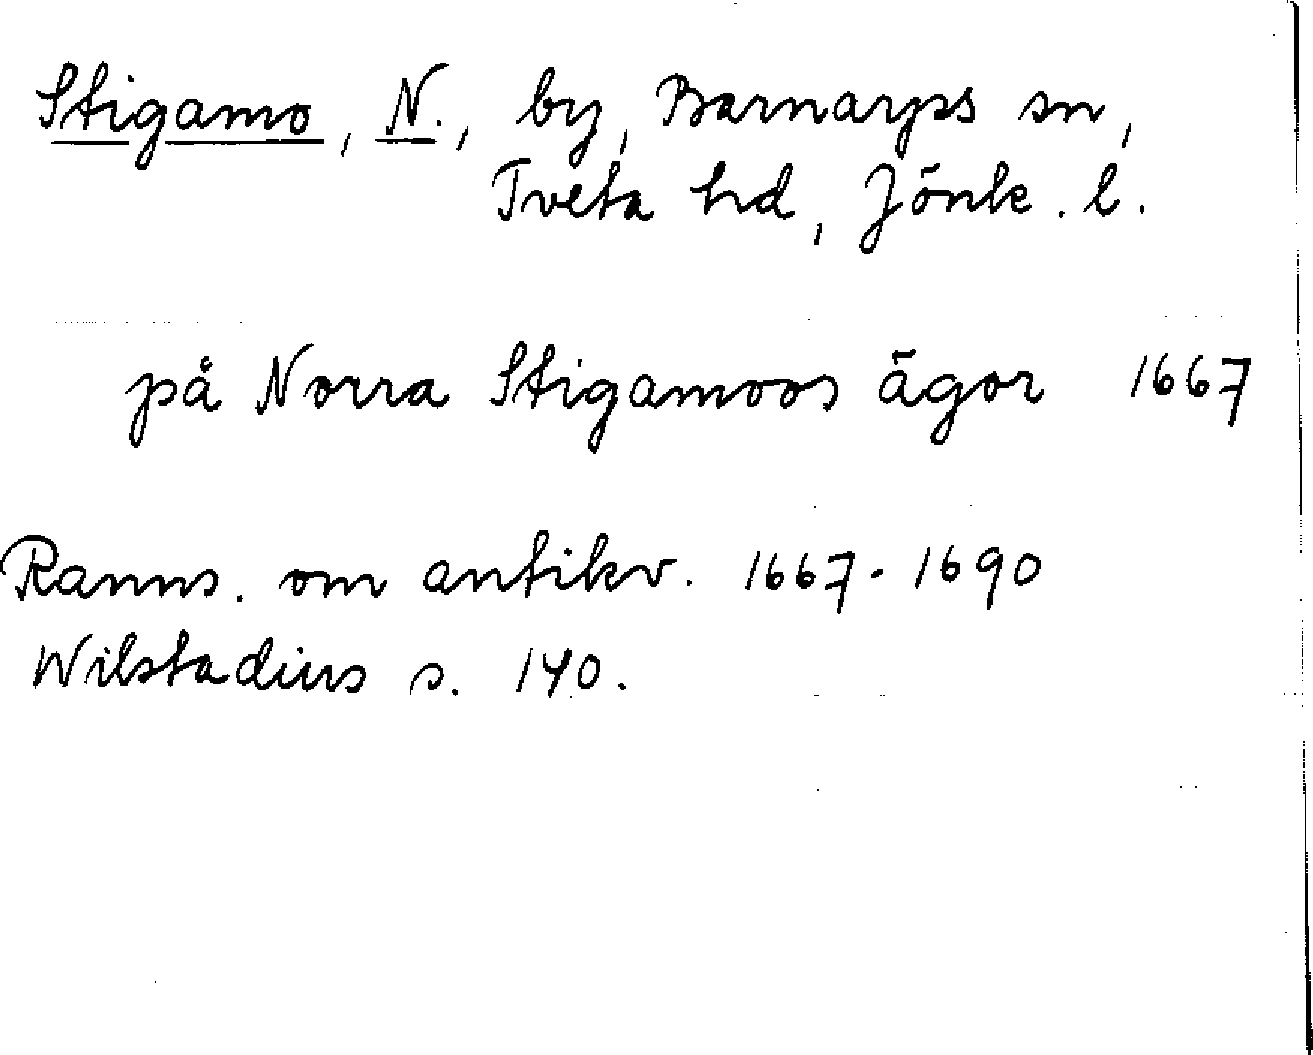 Stigamo, N., by, Barnarps sn,
Tveta hd, Jönk. l.
på Norra Stigamoos ägor 1667
Ranns. om antikv. 1667-1690
Wilstadius s. 140.